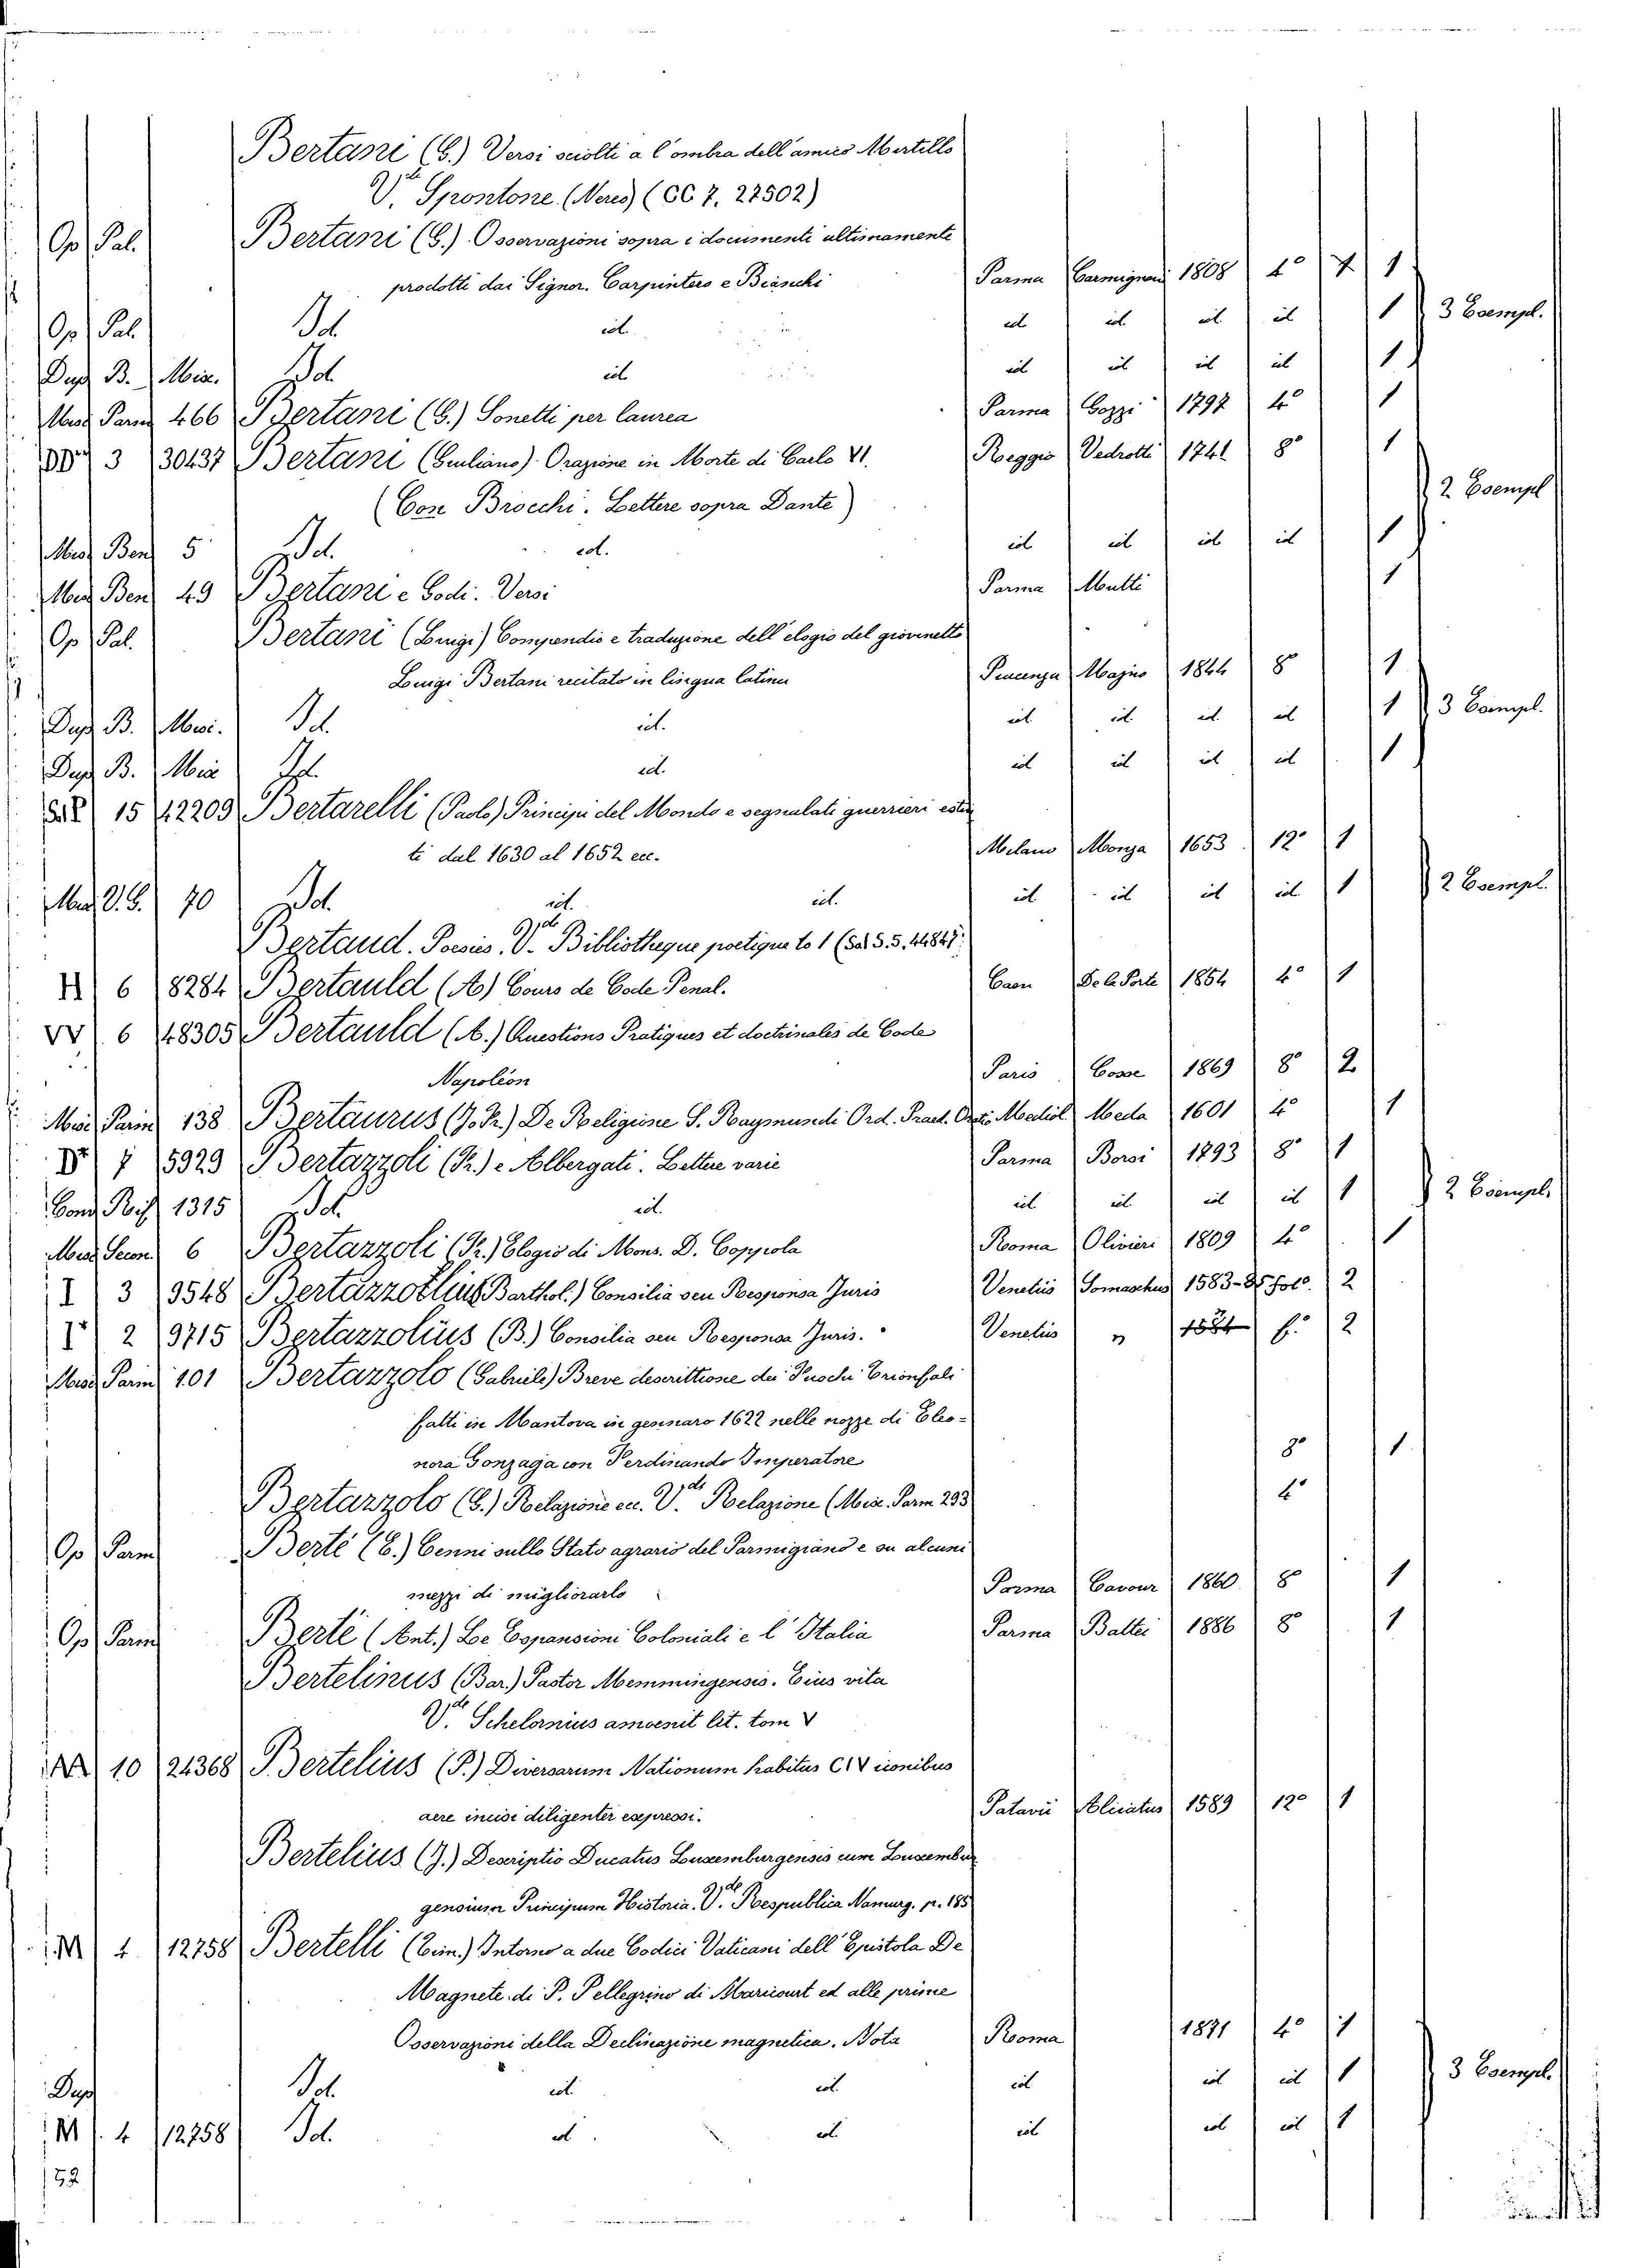 Bertani (G.) Versi sciolti a l'ombra dell'amico Mirtillo
V.de Spontone (Neres) (CC 7. 27502)
Op Pal. Bertani (G.) Osservazioni sopra i documenti ultimamente
prodotti dai Signor. Carpintero e Bianchi Parma Carmignani 1808 4° 1
Op Pal. Id. id. id id id id 1 3 Esempl.
Dup B. Misc. Id id id id id id 1
Misc Parm 466 Bertani (G.) Sonetti per laurea Parma Gozzi 1797 4° 1
3 30437 Bertani (Giuliano) Orazione in Morte di Carlo VI. Reggio Vedrotti 1741 8° 1
(Con Brocchi. Lettere sopra Dante) 2 Esempl
Misc Ben 5 Id. id. id id id id 1
Misc Ben 49 Bertani e Godi. Versi Parma Mutti 1
Op Pal. Bertani (Luigi) Compendio e traduzione dell'elogio del giovinetto
Luigi Bertani recitato in lingua latina Piacenza Majno 1844 8° 1
Dup B. Misc. Id. id. id. id. id. id 1 3 Esempl.
Dup B. Misc Id. id. id id id id 1
15 42209 Bertarelli (Paolo) Principi del Mondo e segnalati guerrieri estin
ti dal 1630 al 1652 ecc. Milano Monza 1653 12° 1
Misc V.E. 70 Id. id. id. id id id id. 1 2 Esempl.
Bertaud. Poesies. V.de Bibliotheque poetique to 1 (Sal S.5. 44847.
H 6 8284 Bertauld (A) Cours de Code Penal. Caen De la Porte 1854 4° 1
VV 6 48305 Bertauld (A.) Questions Pratiques et doctrinales de Code
Napoléon Paris Cosse 1869 8° 2
Misc Parm 138 Bertaurus (J. Fr.) De Religione S. Raymundi Ord. Praed. Orati Mediol. Meda 1601 4° 1
7 5929 Bertazzoli (Fr.) e Albergati. Lettere varie Parma Borsi 1793 8° 1
Cond Rif 1315 Id. id. id. id. id id 1 2 Esempl.
Misc Secon 6 Bertazzoli (Fr.) Elogio di Mons. D. Coppola Roma Olivieri 1809 4° 1
I 3 9548 Bertazzolius Barthol.) Consilia seu Responsa Juris Venetiis Somaschus 1583-85 folo. 2
I 2 9715 Bertazzolius (B.) Consilia seu Responsa Juris. Venetiis " 1584 f.° 2
Misc Parm 101 Bertazzolo (Gabriele) Breve descrittione dei Fuochi Trionfali
fatti in Mantova in gennaro 1622 nelle nozze di Eleo=
nora Gonzaga con Ferdinando Imperatore 8° 1
Bertazzolo (G.) Relazione ecc. V.de Relazione (Misc. Parm 293 4°
Op Parm Berté (E.) Cenni sullo Stato agrario del Parmigiano e su alcuni
mezzi di migliorarlo Parma Cavour 1860 8° 1
Op Parm Berté (Ant.) Le Espansioni Coloniali e l'Italia Parma Battei 1886 8° 1
Bertelinus (Bar.) Pastor Memmingensis. Eius vita
V.de Schelornius amoenit lit. tom V
10 24368 Bertelius (P.) Diversarum Nationum habitus CIV iconibus
aere incisi diligenter expressi. Patavii Aliciatus 1589 12° 1
Bertelius (J.) Descriptio Ducatus Luxemburgensis cum Luxembur
gensium Principum Historia. V.de Respublica Namurg. p. 185
M 4 12758 Bertelli (Tim.) Intorno a due Codici Vaticani dell'Epistola De
Magnete di P. Pellegrino di Maricourt ed alle prime
Osservazioni della Declinazione magnetica. Nota Roma 1871 4° 1
Dup Id. id. id. id id id 1 3 Esempl.
M 4 12758 Id. id. id. id id id 1